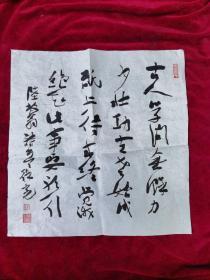 古人学问無遺力
少壮功夫老始成
纸上得来终觉浅
绝知此事要躬行
陸放翁詩